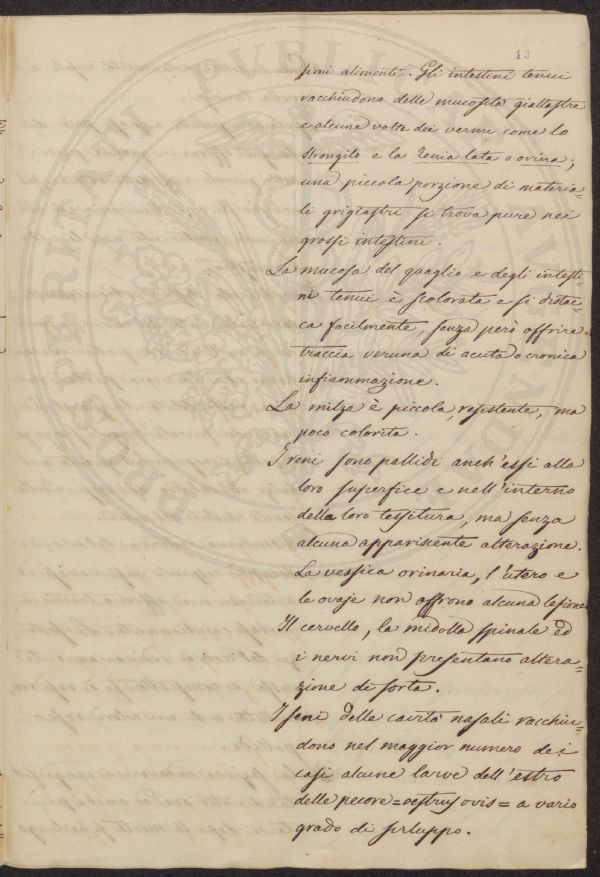 13
simi alimenti. Gli intestini tenui
racchiudono delle mucosità giallastre
e alcune volte dei vermi come lo
strongilo e la Tenia lata o ovina;
una piccola porzione di materia=
li grigiastri si trova pure nei
grossi intestini.
La mucosa del quaglio e degli intesti=
ni tenui è scolorata e si distac=
ca facilmente, senza però offrire
traccia veruna di acuta o cronica
infiammazione.
La milza è piccola, resistente, ma
poco colorita.
I reni sono pallidi anch'essi alla
loro superfice e nell'interno
della loro tessitura, ma senza
alcuna appariscente alterazione.
La vessica orinaria, l'utero e
le ovaje non offrono alcuna lesione.
Il cervello, la midolla spinale ed
i nervi non presentano altera=
zione di sorta.
I seni delle cavità nasali racchiu=
dono nel maggior numero dei
casi alcune larve dell'estro
delle pecore = oestrus ovis = a vario
grado di sviluppo.